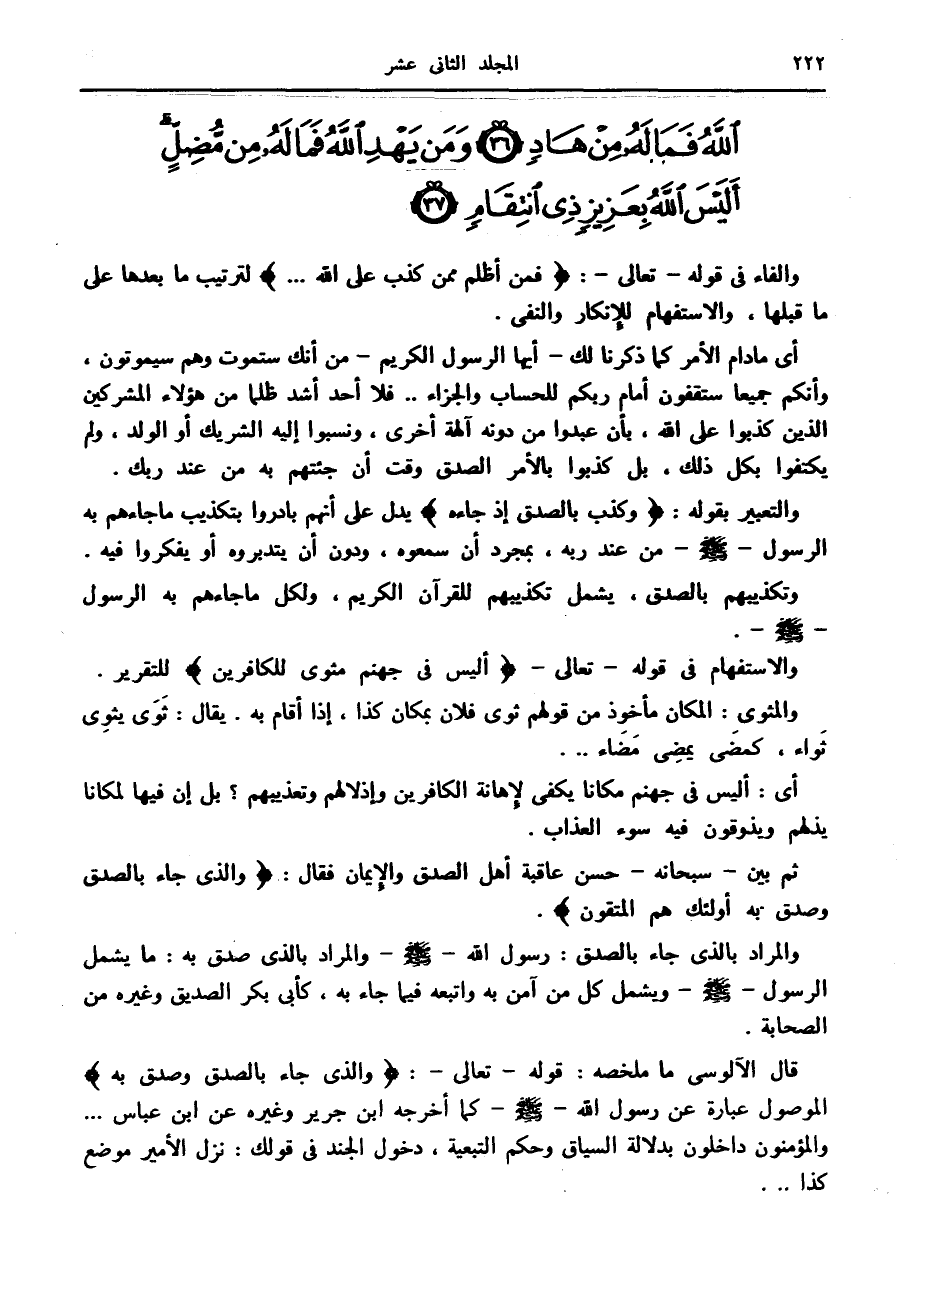 ٢٢٢ المجلد الثانى عشر
ٱللَّهُ فَمَا لَهُۥ مِنْ هَادٍ ﴿٣٦﴾ وَمَن يَهْدِ ٱللَّهُ فَمَا لَهُۥ مِن مُّضِلٍّ ۗ
أَلَيْسَ ٱللَّهُ بِعَزِيزٍ ذِى ٱنتِقَامٍ ﴿٣٧﴾
والفاء فى قوله – تعالى – : ﴿ فمن أظلم ممن كذب على الله ... ﴾ لترتيب ما بعدها على
ما قبلها ، والاستفهام للإنكار والنفى .
أى مادام الأمر كما ذكرنا لك – أيها الرسول الكريم – من أنك ستموت وهم سيموتون ،
وأنكم جميعا ستقفون أمام ربكم للحساب والجزاء .. فلا أحد أشد ظلما من هؤلاء المشركين
الذين كذبوا على الله ، بأن عبدوا من دونه آلهة أخرى ، ونسبوا إليه الشريك أو الولد ، ولم
يكتفوا بكل ذلك ، بل كذبوا بالأمر الصدق وقت أن جئتهم به من عند ربك .
والتعبير بقوله : ﴿ وكذب بالصدق إذ جاءه ﴾ يدل على أنهم بادروا بتكذيب ماجاءهم به
الرسول – ﷺ – من عند ربه ، بمجرد أن سمعوه ، ودون أن يتدبروه أو يفكروا فيه .
وتكذيبهم بالصدق ، يشمل تكذيبهم للقرآن الكريم ، ولكل ماجاءهم به الرسول
– ﷺ – .
والاستفهام فى قوله – تعالى – ﴿ أليس فى جهنم مثوى للكافرين ﴾ للتقرير .
والمثوى : المكان مأخوذ من قولهم ثوى فلان بمكان كذا ، إذا أقام به . يقال : ثَوَى يثوِى
ثَواء ، كمضَى يمضِى مَضَاء .. .
أى : أليس فى جهنم مكانا يكفى لإهانة الكافرين وإذلالهم وتعذيبهم ؟ بل إن فيها لمكانا
يذلهم ويذوقون فيه سوء العذاب .
ثم بين – سبحانه – حسن عاقبة أهل الصدق والإيمان فقال : ﴿ والذى جاء بالصدق
وصدق به أولئك هم المتقون ﴾ .
والمراد بالذى جاء بالصدق : رسول الله – ﷺ – والمراد بالذى صدق به : ما يشمل
الرسول – ﷺ – ويشمل كل من آمن به واتبعه فيما جاء به ، كأبى بكر الصديق وغيره من
الصحابة .
قال الآلوسى ما ملخصه : قوله – تعالى – : ﴿ والذى جاء بالصدق وصدق به ﴾
الموصول عبارة عن رسول الله – ﷺ – كما أخرجه ابن جرير وغيره عن ابن عباس ...
والمؤمنون داخلون بدلالة السياق وحكم التبعية ، دخول الجند فى قولك : نزل الأمير موضع
كذا .. .